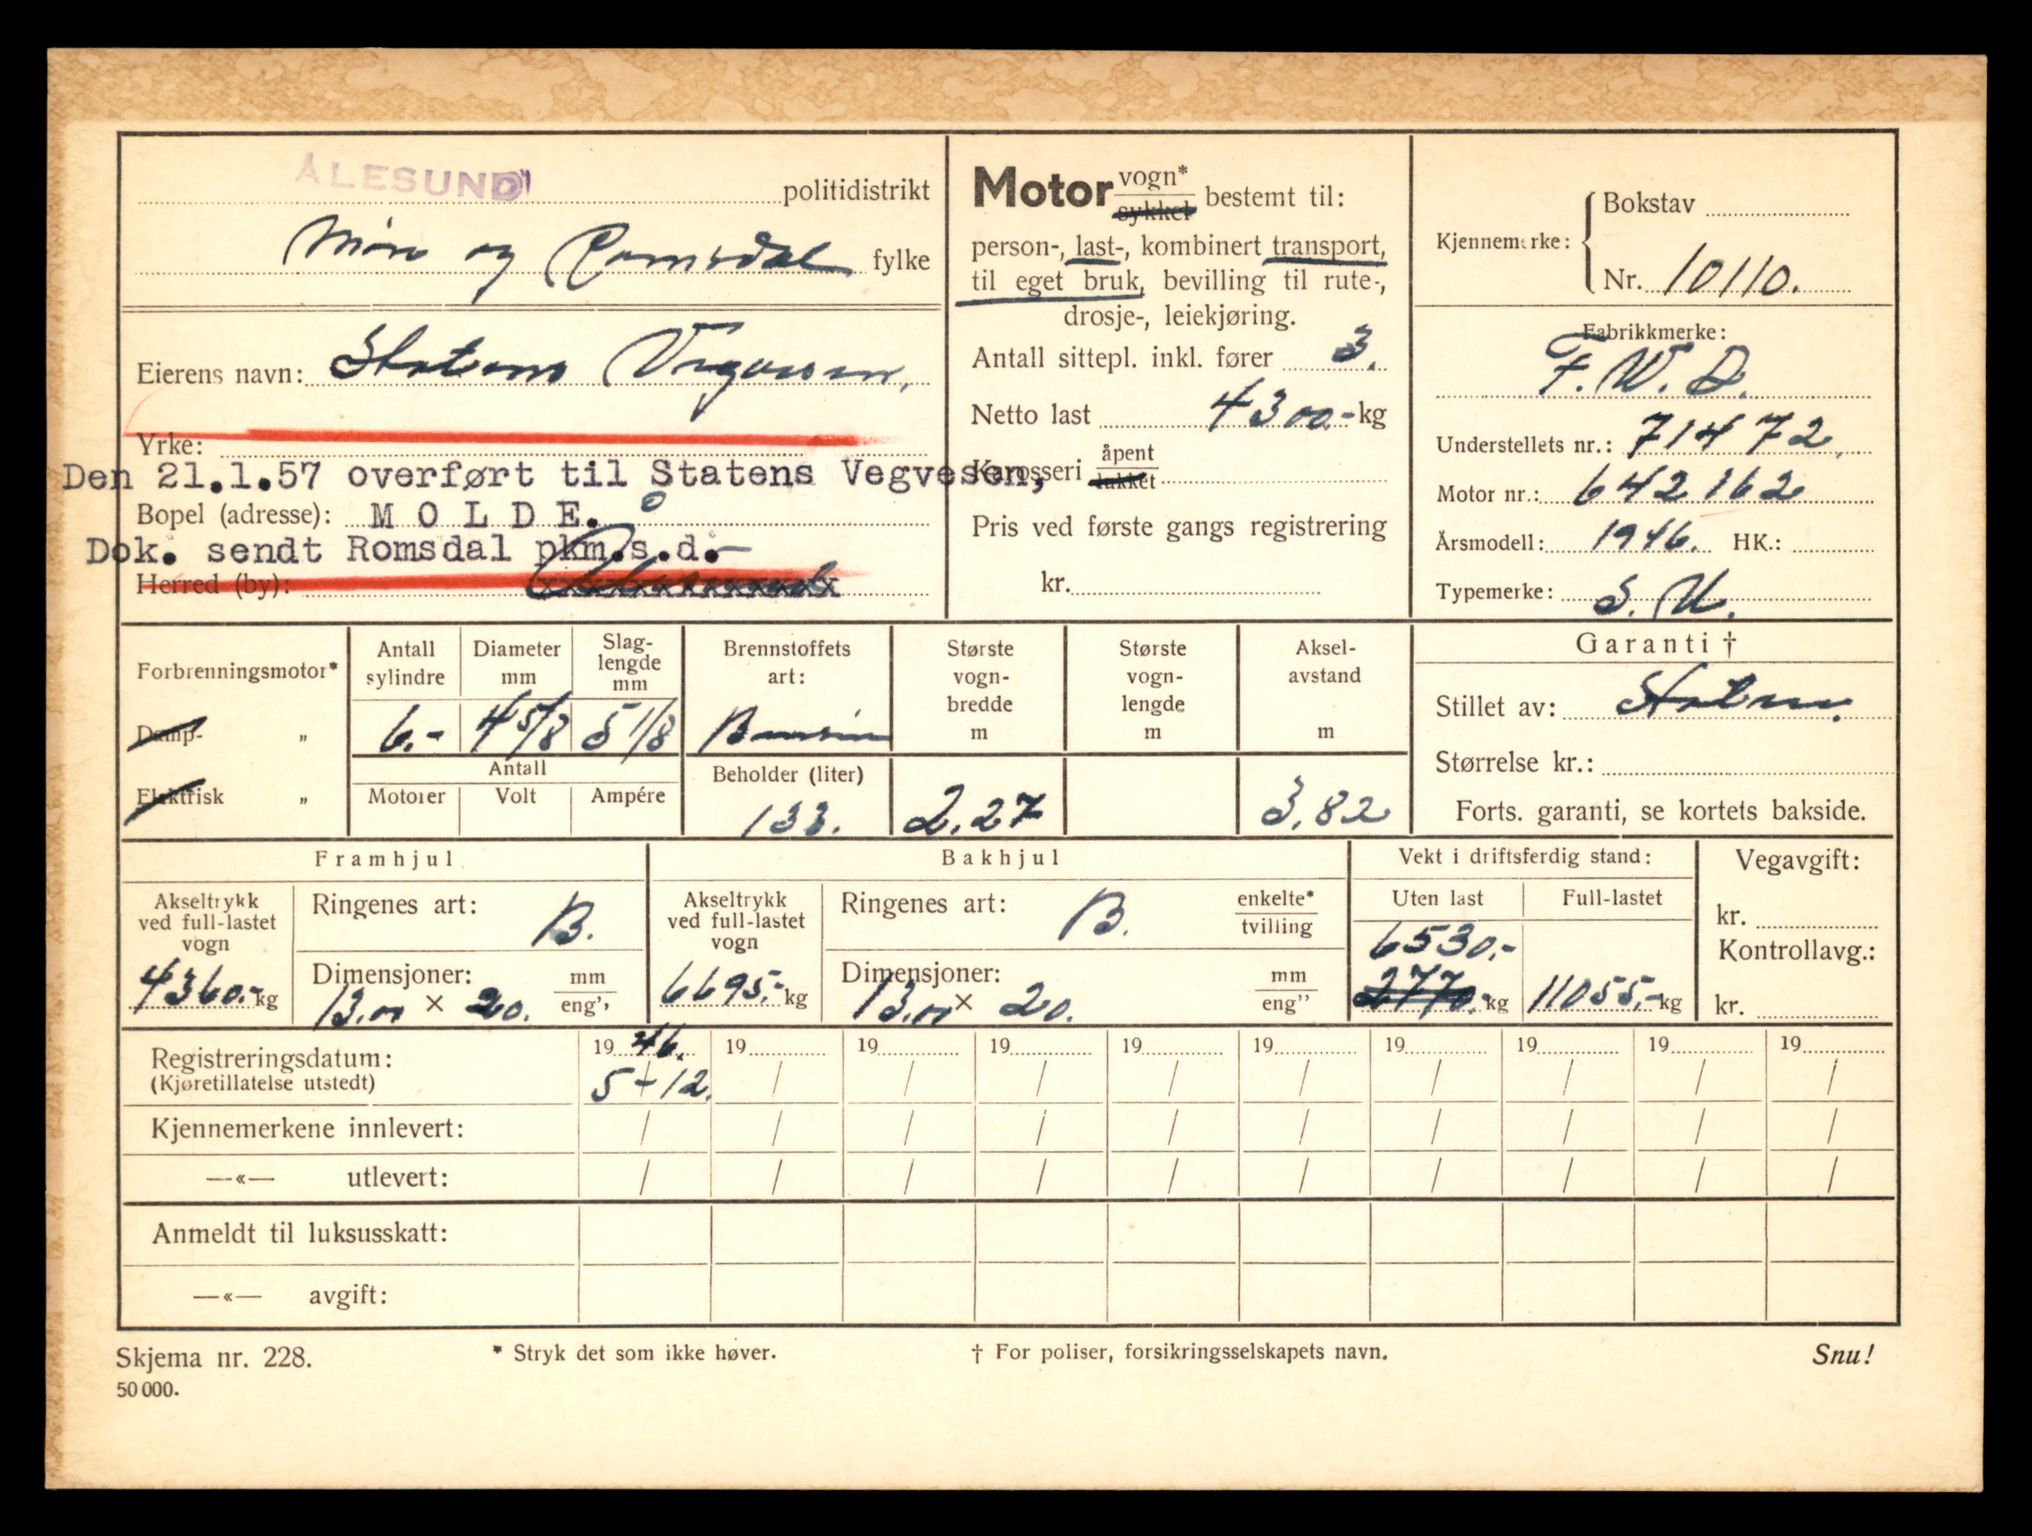 ÅLESUND politidistrikt
Møre og Romsdal fylke
Eierens navn: Statens Vegvesen,
Yrke:
Den 21.1.57 overført til Statens Vegvesen,
Bopel (adresse): M O L D E.
Dok. sendt Romsdal pkm.s.d.-
Herred (by):
Motor vogn* sykkel bestemt til:
person-, last-, kombinert transport,
til eget bruk, bevilling til rute-,
drosje-, leiekjøring.
Antall sittepl. inkl. fører 3.
Netto last 4300.- kg
Karosseri åpent lukket
Pris ved første gangs registrering
kr.
Kjennemerke: Bokstav
Nr. 10110.
Fabrikkmerke:
F. W. D.
Understellets nr.: 71472.
Motor nr.: 642162
Årsmodell: 1946. HK.:
Typemerke: S. U.
Forbrenningsmotor*
Damp- „
Elektrisk „
Antall sylindre
Diameter mm
Slag-lengde mm
6.- 4 5/8 5 1/8
Antall
Motorer Volt Ampére
Brennstoffets art:
Bensin
Beholder (liter)
133.
Største vogn-bredde m
2.27
Største vogn-lengde m
Aksel-avstand m
3.82
Garanti †
Stillet av: Staten.
Størrelse kr.:
Forts. garanti, se kortets bakside.
Framhjul
Akseltrykk ved full-lastet vogn
4360.- kg
Ringenes art: B.
Dimensjoner: mm eng''
13.00 × 20.
Bakhjul
Akseltrykk ved full-lastet vogn
6695.- kg
Ringenes art: B. enkelte* tvilling
Dimensjoner: mm eng''
13.00 × 20.
Vekt i driftsferdig stand:
Uten last Full-lastet
6530.-
2770.- kg 11055.- kg
Vegavgift:
kr.
Kontrollavg.:
kr.
Registreringsdatum: 19 46. 19 19 19 19 19 19 19 19 19
(Kjøretillatelse utstedt) 5-12. / / / / / / / / /
Kjennemerkene innlevert: / / / / / / / / / /
—«— utlevert: / / / / / / / / / /
Anmeldt til luksusskatt:
—«— avgift:
Skjema nr. 228. * Stryk det som ikke høver. † For poliser, forsikringsselskapets navn. Snu!
50 000.